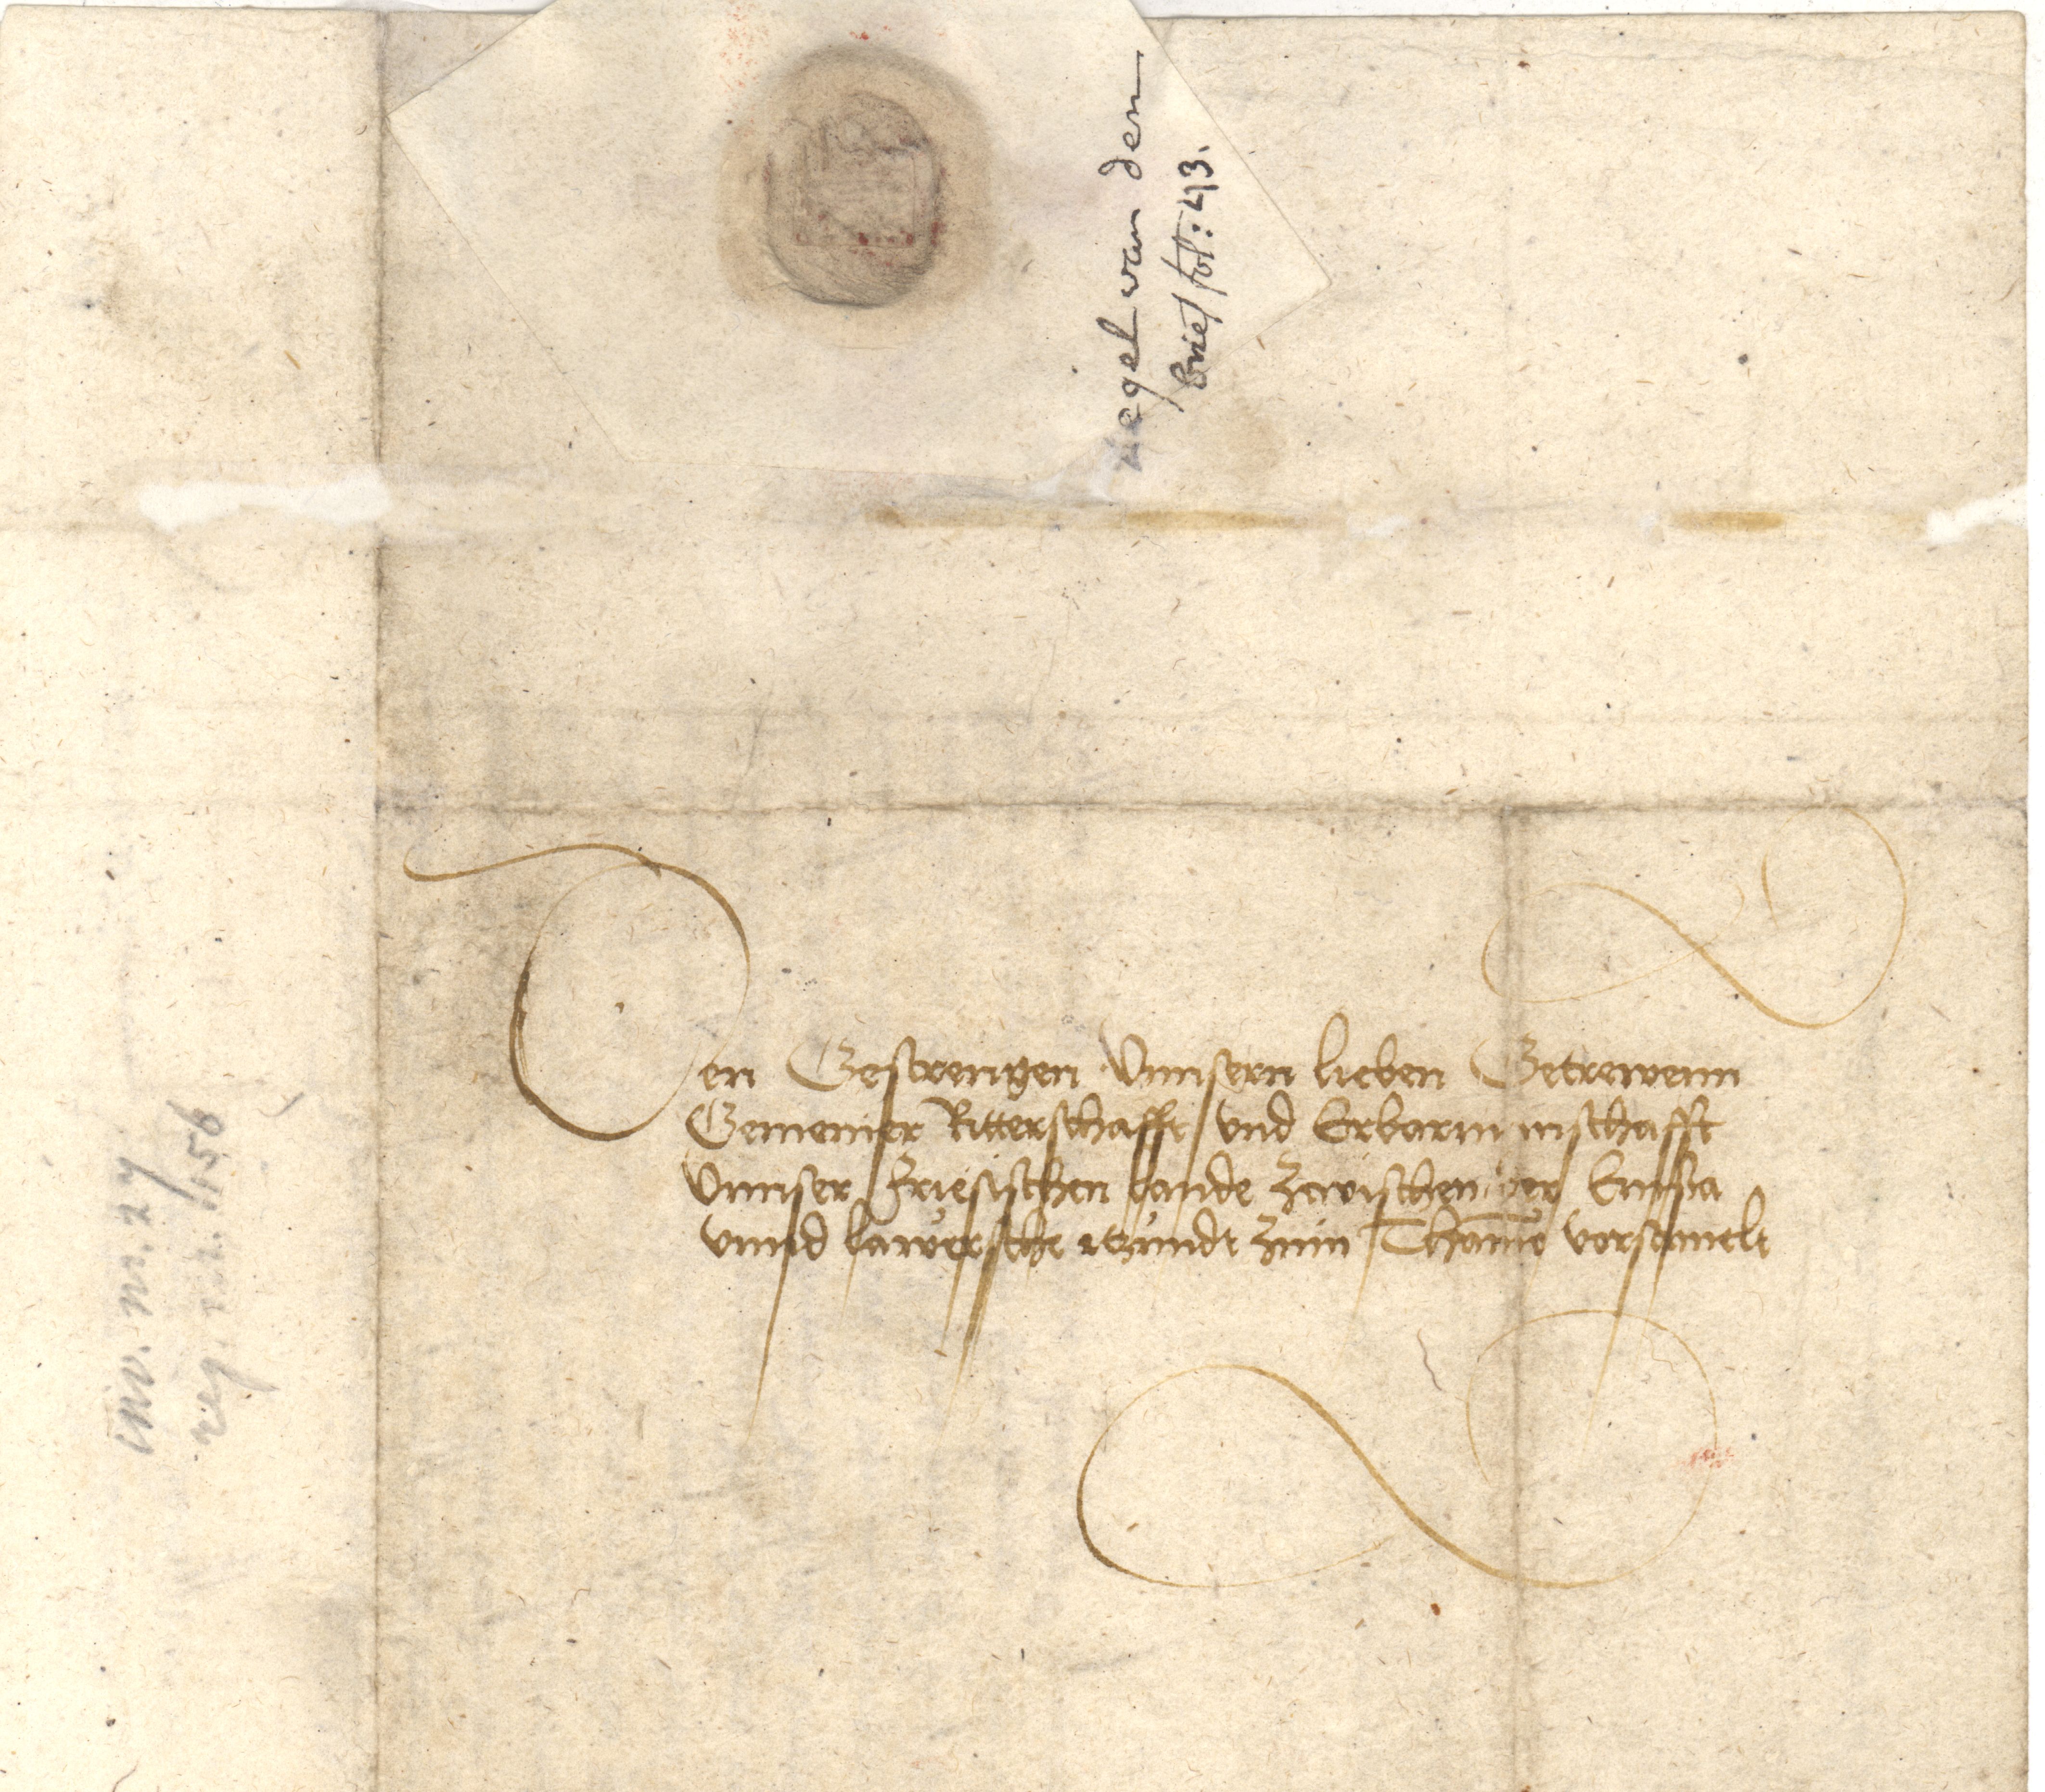 zegel van den
brief fol: 493.
Den Gestrengen Vnnsern lieben Getrewenn
Gemeiner Ritterschafft vnd Erbarm mschafft
Vnnser Friesischen lande Zwischen der Emsa
vnnd lawersche Zum Thame vorsamelt
inv. nr. 27
reg.